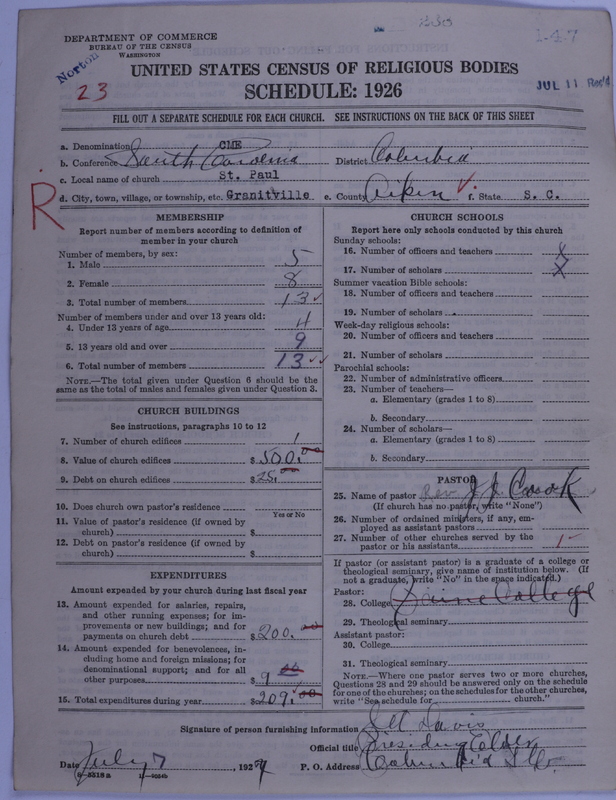 233
1-4-7
DEPARTMENT OF COMMERCE
BUREAU OF THE CENSUS
WASHINGTON
Norton
23
JUL 11 Rec'd
UNITED STATES CENSUS OF RELIGIOUS BODIES
SCHEDULE: 1926
FILL OUT A SEPARATE SCHEDULE FOR EACH CHURCH. SEE INSTRUCTIONS ON THE BACK OF THIS SHEET
a. Denomination CME
b. Conference South Carolina District Columbia
c. Local name of church St. Paul
d. City, town, village, or township, etc. Granitville e. County Aiken ✓ f. State S. C.
R
MEMBERSHIP
Report number of members according to definition of
member in your church
Number of members, by sex:
1. Male 5
2. Female 8
3. Total number of members 13 ✓
Number of members under and over 13 years old:
4. Under 13 years of age 4
5. 13 years old and over 9
6. Total number of members 13 ✓ ✓
NOTE.—The total given under Question 6 should be the
same as the total of males and females given under Question 3.
CHURCH BUILDINGS
See instructions, paragraphs 10 to 12
7. Number of church edifices 1
8. Value of church edifices $500.00
9. Debt on church edifices $25.00
10. Does church own pastor's residence
Yes or No
11. Value of pastor's residence (if owned by
church) $
12. Debt on pastor's residence (if owned by
church) $
EXPENDITURES
Amount expended by your church during last fiscal year
13. Amount expended for salaries, repairs,
and other running expenses; for im-
provements or new buildings; and for
payments on church debt $200.00
14. Amount expended for benevolences, in-
cluding home and foreign missions; for
denominational support; and for all
other purposes $9.00
15. Total expenditures during year $209.00
CHURCH SCHOOLS
Report here only schools conducted by this church
Sunday schools:
16. Number of officers and teachers
17. Number of scholars
Summer vacation Bible schools:
18. Number of officers and teachers
19. Number of scholars
Week-day religious schools:
20. Number of officers and teachers
21. Number of scholars
Parochial schools:
22. Number of administrative officers
23. Number of teachers—
a. Elementary (grades 1 to 8)
b. Secondary
24. Number of scholars—
a. Elementary (grades 1 to 8)
b. Secondary
PASTOR
25. Name of pastor Rev J. J. Cook
(If church has no pastor, write "None")
26. Number of ordained ministers, if any, em-
ployed as assistant pastors
27. Number of other churches served by the
pastor or his assistants 1
If pastor (or assistant pastor) is a graduate of a college or
theological seminary, give name of institution below. (If
not a graduate, write "No" in the space indicated.)
Pastor:
28. College Paine College
29. Theological seminary
Assistant pastor:
30. College
31. Theological seminary
NOTE.—Where one pastor serves two or more churches,
Questions 28 and 29 should be answered only on the schedule
for one of the churches; on the schedules for the other churches,
write "See schedule for church."
Signature of person furnishing information Davis
Official title Presiding Elder
Date July 7, 1927 P. O. Address Columbia S.C.
8-3318a